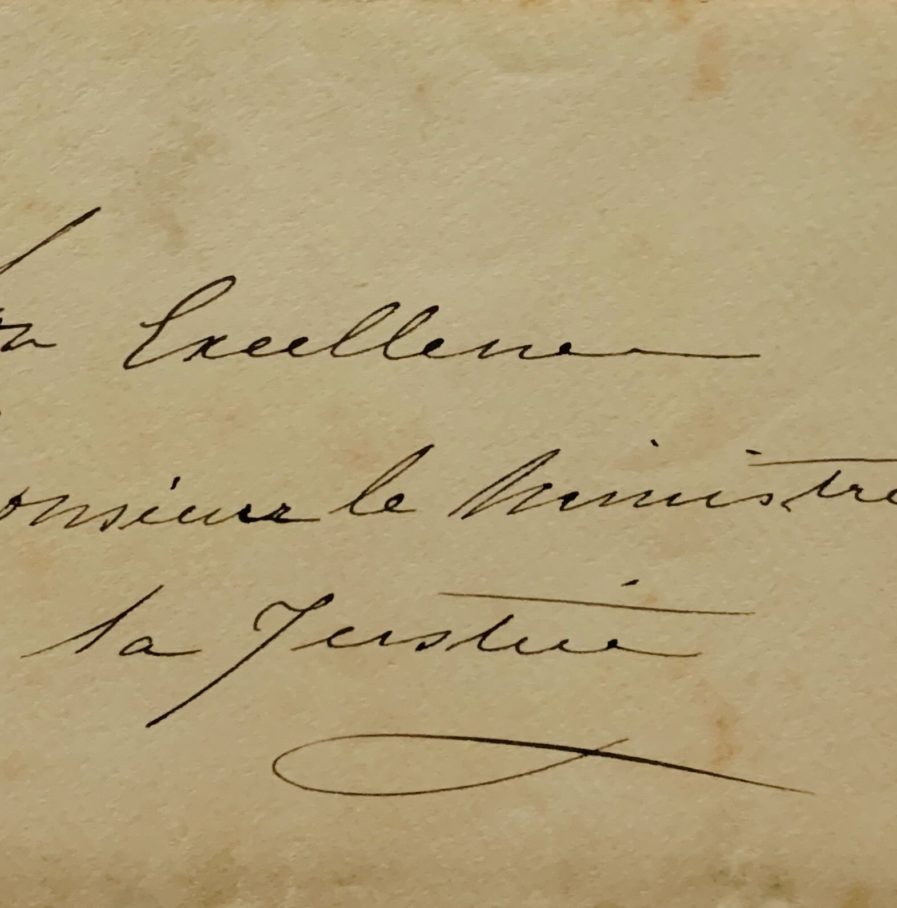 Son Excellence
Monsieur le Ministre
la Justice